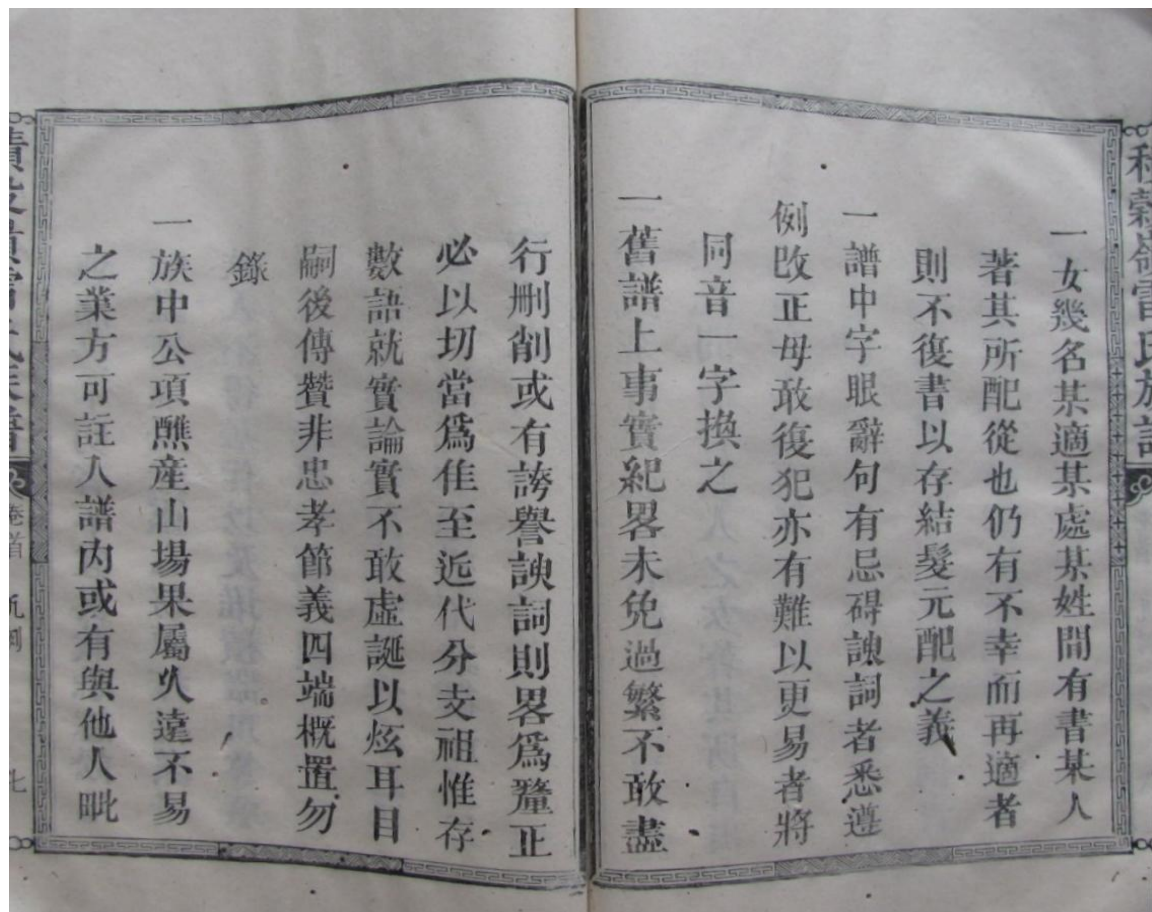 一女幾名某適某處某姓間有書某人
著其所配從也仍有不幸而再適者
則不復書以存結髮元配之義
一譜中字眼辭句有忌碍諛詞者悉遵
例改正毋敢復犯亦有難以更易者將
同音一字換之
一舊譜上事實紀畧未免過繁不敢盡
行刪削或有誇譽諛詞則畧爲釐正
必以切當爲佳至近代分支祖惟存
數語就實論實不敢虛誕以炫耳目
嗣後傳贊非忠孝節義四端概置勿
錄
一族中公項醮産山場果屬久遠不易
之業方可註入譜內或有與他人毗